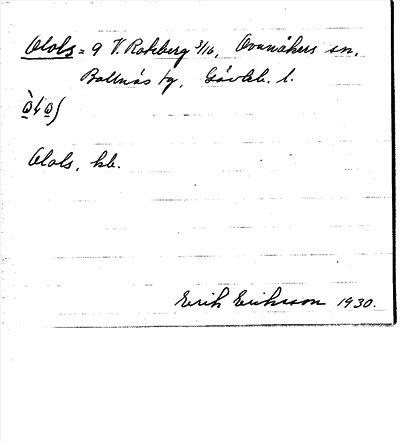 Olols = 9 V. Roteberg 3/16, Ovanåkers sn,
Bollnäs tg, Gävleb. l.
Olols, kb.
Erik Eriksson 1930.